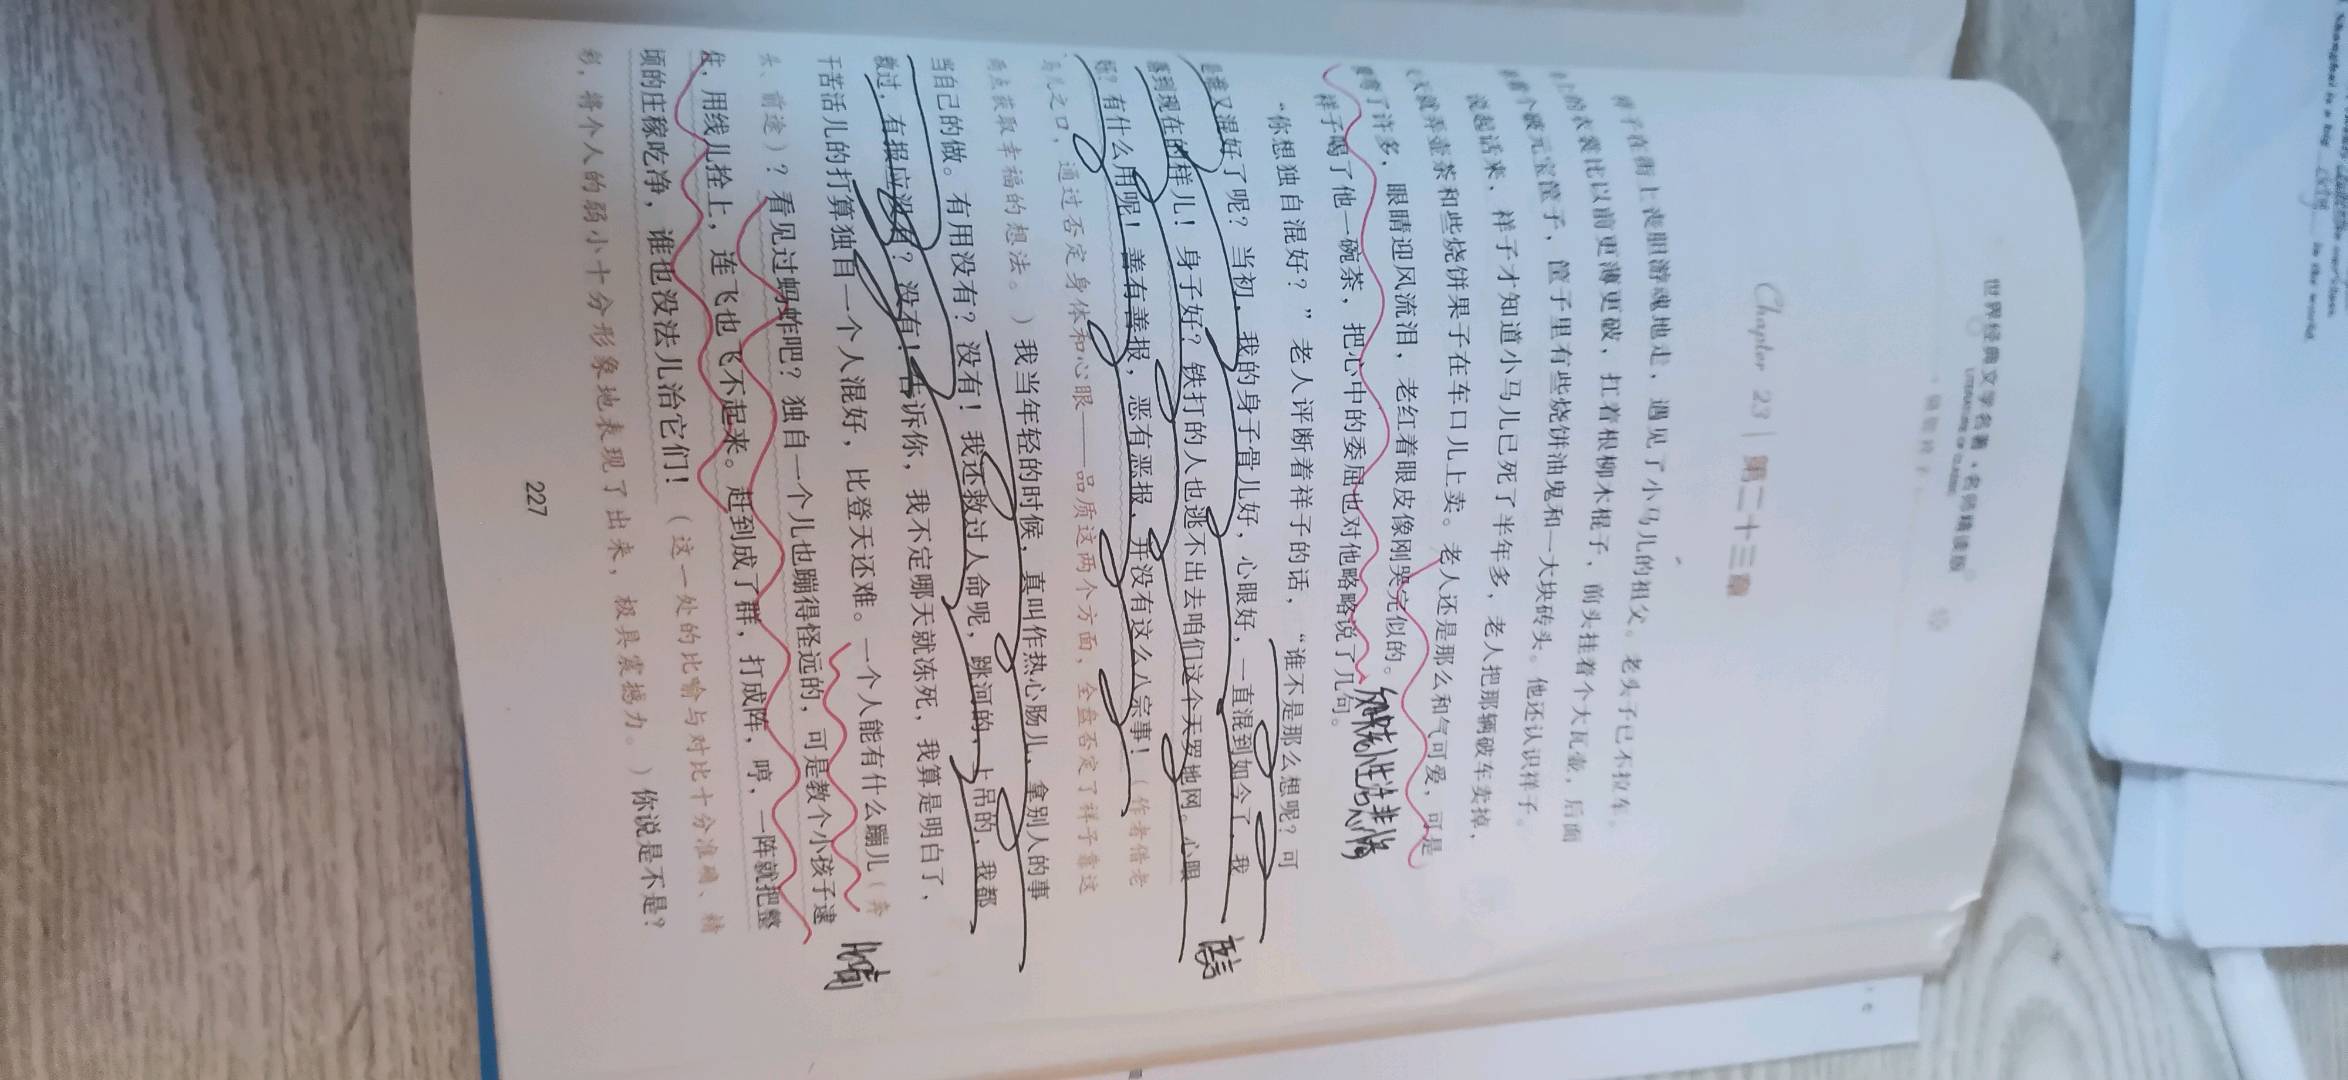 世界经典文学名著·名师精读版
Chapter 23 | 第二十三章
祥子在街上丧胆游魂地走，遇见了小马儿的祖父。老头子已不拉车。
身上的衣裳比以前更薄更破，扛着根柳木棍子，前头挂着个大瓦壶，后面
挂着个破元宝筐子，筐子里有些烧饼油鬼和一大块砖头。他还认识祥子。
说起话来，祥子才知道小马儿已死了半年多，老人把那辆破车卖掉，
天天就弄壶茶和些烧饼果子在车口儿上卖。老人还是那么和气可爱，可是
腰弯了许多，眼睛迎风流泪，老红着眼皮像刚哭完似的。
祥子喝了他一碗茶，把心中的委屈也对他略略说了几句。
“你想独自混好？”老人评断着祥子的话，“谁不是那么想呢？可
是谁又混好了呢？当初，我的身子骨儿好，心眼好，一直混到如今了，我
落到现在的样儿！身子好？铁打的人也逃不出去咱们这个天罗地网。心眼
好？有什么用呢！善有善报，恶有恶报，并没有这么八宗事！（作者借老
马儿之口，通过否定身体和心眼——品质这两个方面，全盘否定了祥子靠这
两点获取幸福的想法。）我当年轻的时候，真叫作热心肠儿，拿别人的事
当自己的做。有用没有？没有！我还救过人命呢，跳河的，上吊的，我都
救过，有报应没有？没有！告诉你，我不定哪天就冻死，我算是明白了，
干苦活儿的打算独自一个人混好，比登天还难。一个人能有什么蹦儿（奔
头、前途）？看见过蚂蚱吧？独自一个儿也蹦得怪远的，可是教个小孩子逮
住，用线儿拴上，连飞也飞不起来。赶到成了群，打成阵，哼，一阵就把整
顷的庄稼吃净，谁也没法儿治它们！（这一处的比喻与对比十分准确、精
彩，将个人的弱小十分形象地表现了出来，极具震撼力。）你说是不是？
227